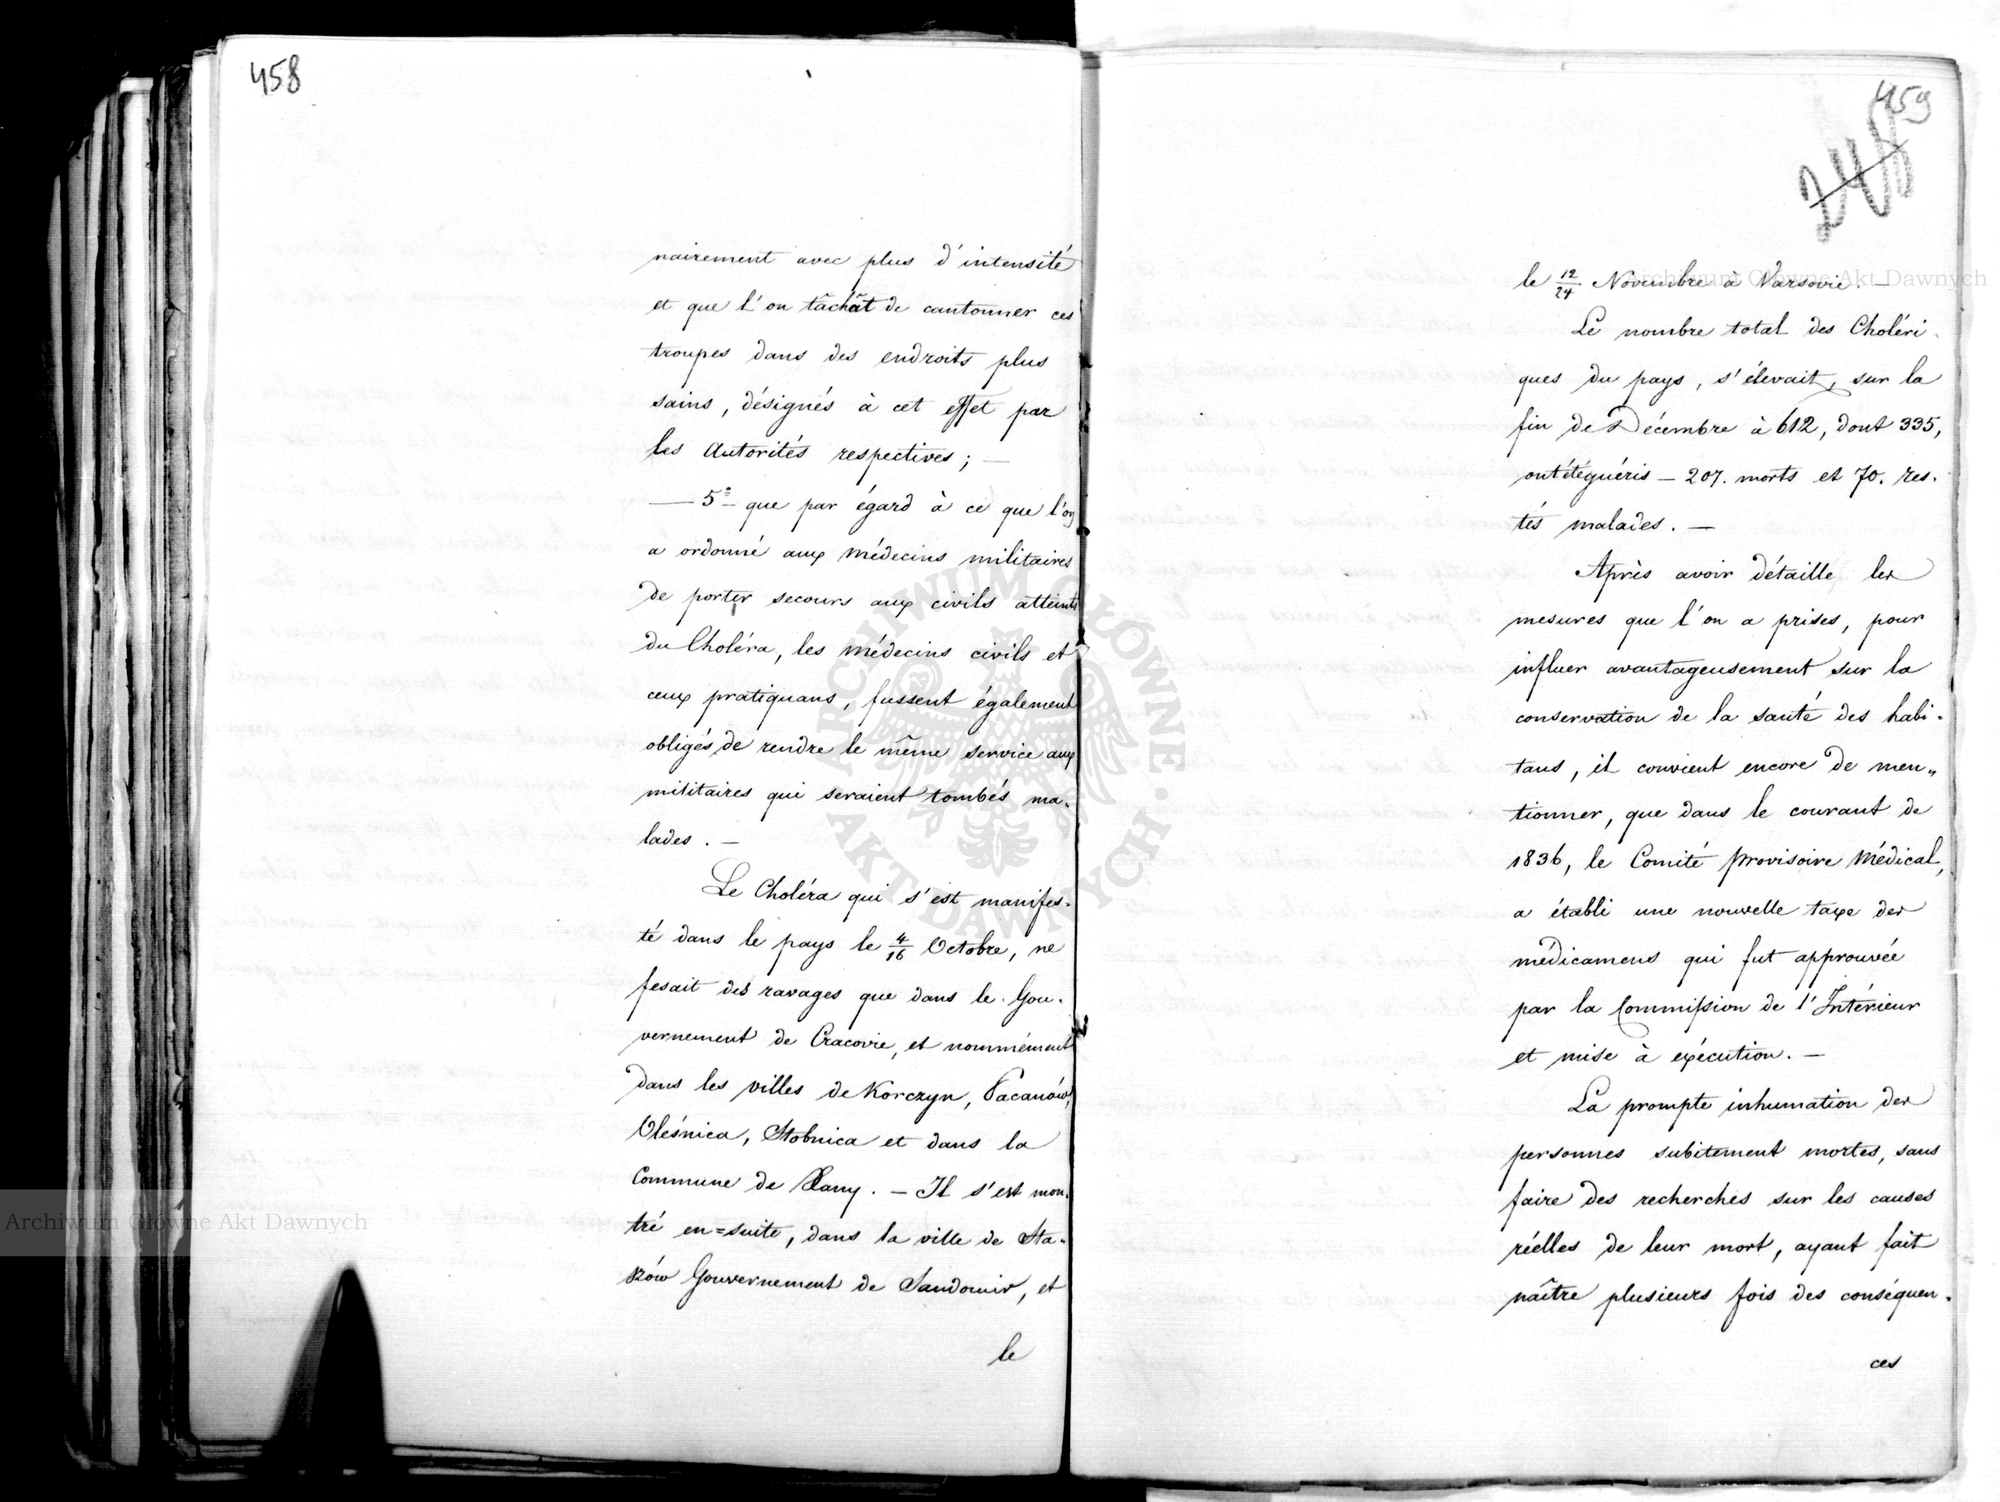 458
nairement avec plus d'intensité
et que l'on tâchât de cantonner ces
troupes dans des endroits plus
sains, désignés à cet effet par
les Autorités respectives; —
— 5° que par égard à ce que l'on
a ordonné aux Médecins militaires
de porter secours aux civils atteints
du Choléra, les Médecins civils et
ceux pratiquans, fussent également
obligés de rendre le même service aux
militaires qui seraient tombés ma-
lades. —
Le Choléra qui s'est manifes-
té dans le pays le 4/16 Octobre, ne
fesait des ravages que dans le Gou-
vernement de Cracovie, et nommément
dans les villes de Korczyn, Pacanów,
Oleśnica, Stobnica et dans la
Commune de Łany. — Il s'est mon-
tré en=suite, dans la ville de Sta-
szów Gouvernement de Sandomir, et
le
459
248
le 12/24 Novembre à Varsovie. —
Le nombre total des Choléri-
ques du pays, s'élevait, sur la
fin de Décembre à 612, dont 335,
ont été guéris — 207. morts et 70. res-
tés malades. —
Après avoir détaille les
mesures que l'on a prises, pour
influer avantageusement sur la
conservation de la santé des habi-
tans, il convient encore de men-
tionner, que dans le courant de
1836, le Comité provisoire Médical,
a établi une nouvelle taxe des
médicamens qui fut approuvée
par la Commission de l'Intérieur
et mise à exécution. —
La prompte inhumation des
personnes subitement mortes, sans
faire des recherches sur les causes
réelles de leur mort, ayant fait
naître plusieurs fois des conséquen-
ces
Archiwum Główne Akt Dawnych
Archiwum Główne Akt Dawnych
ARCHIWUM GŁÓWNE AKT DAWNYCH